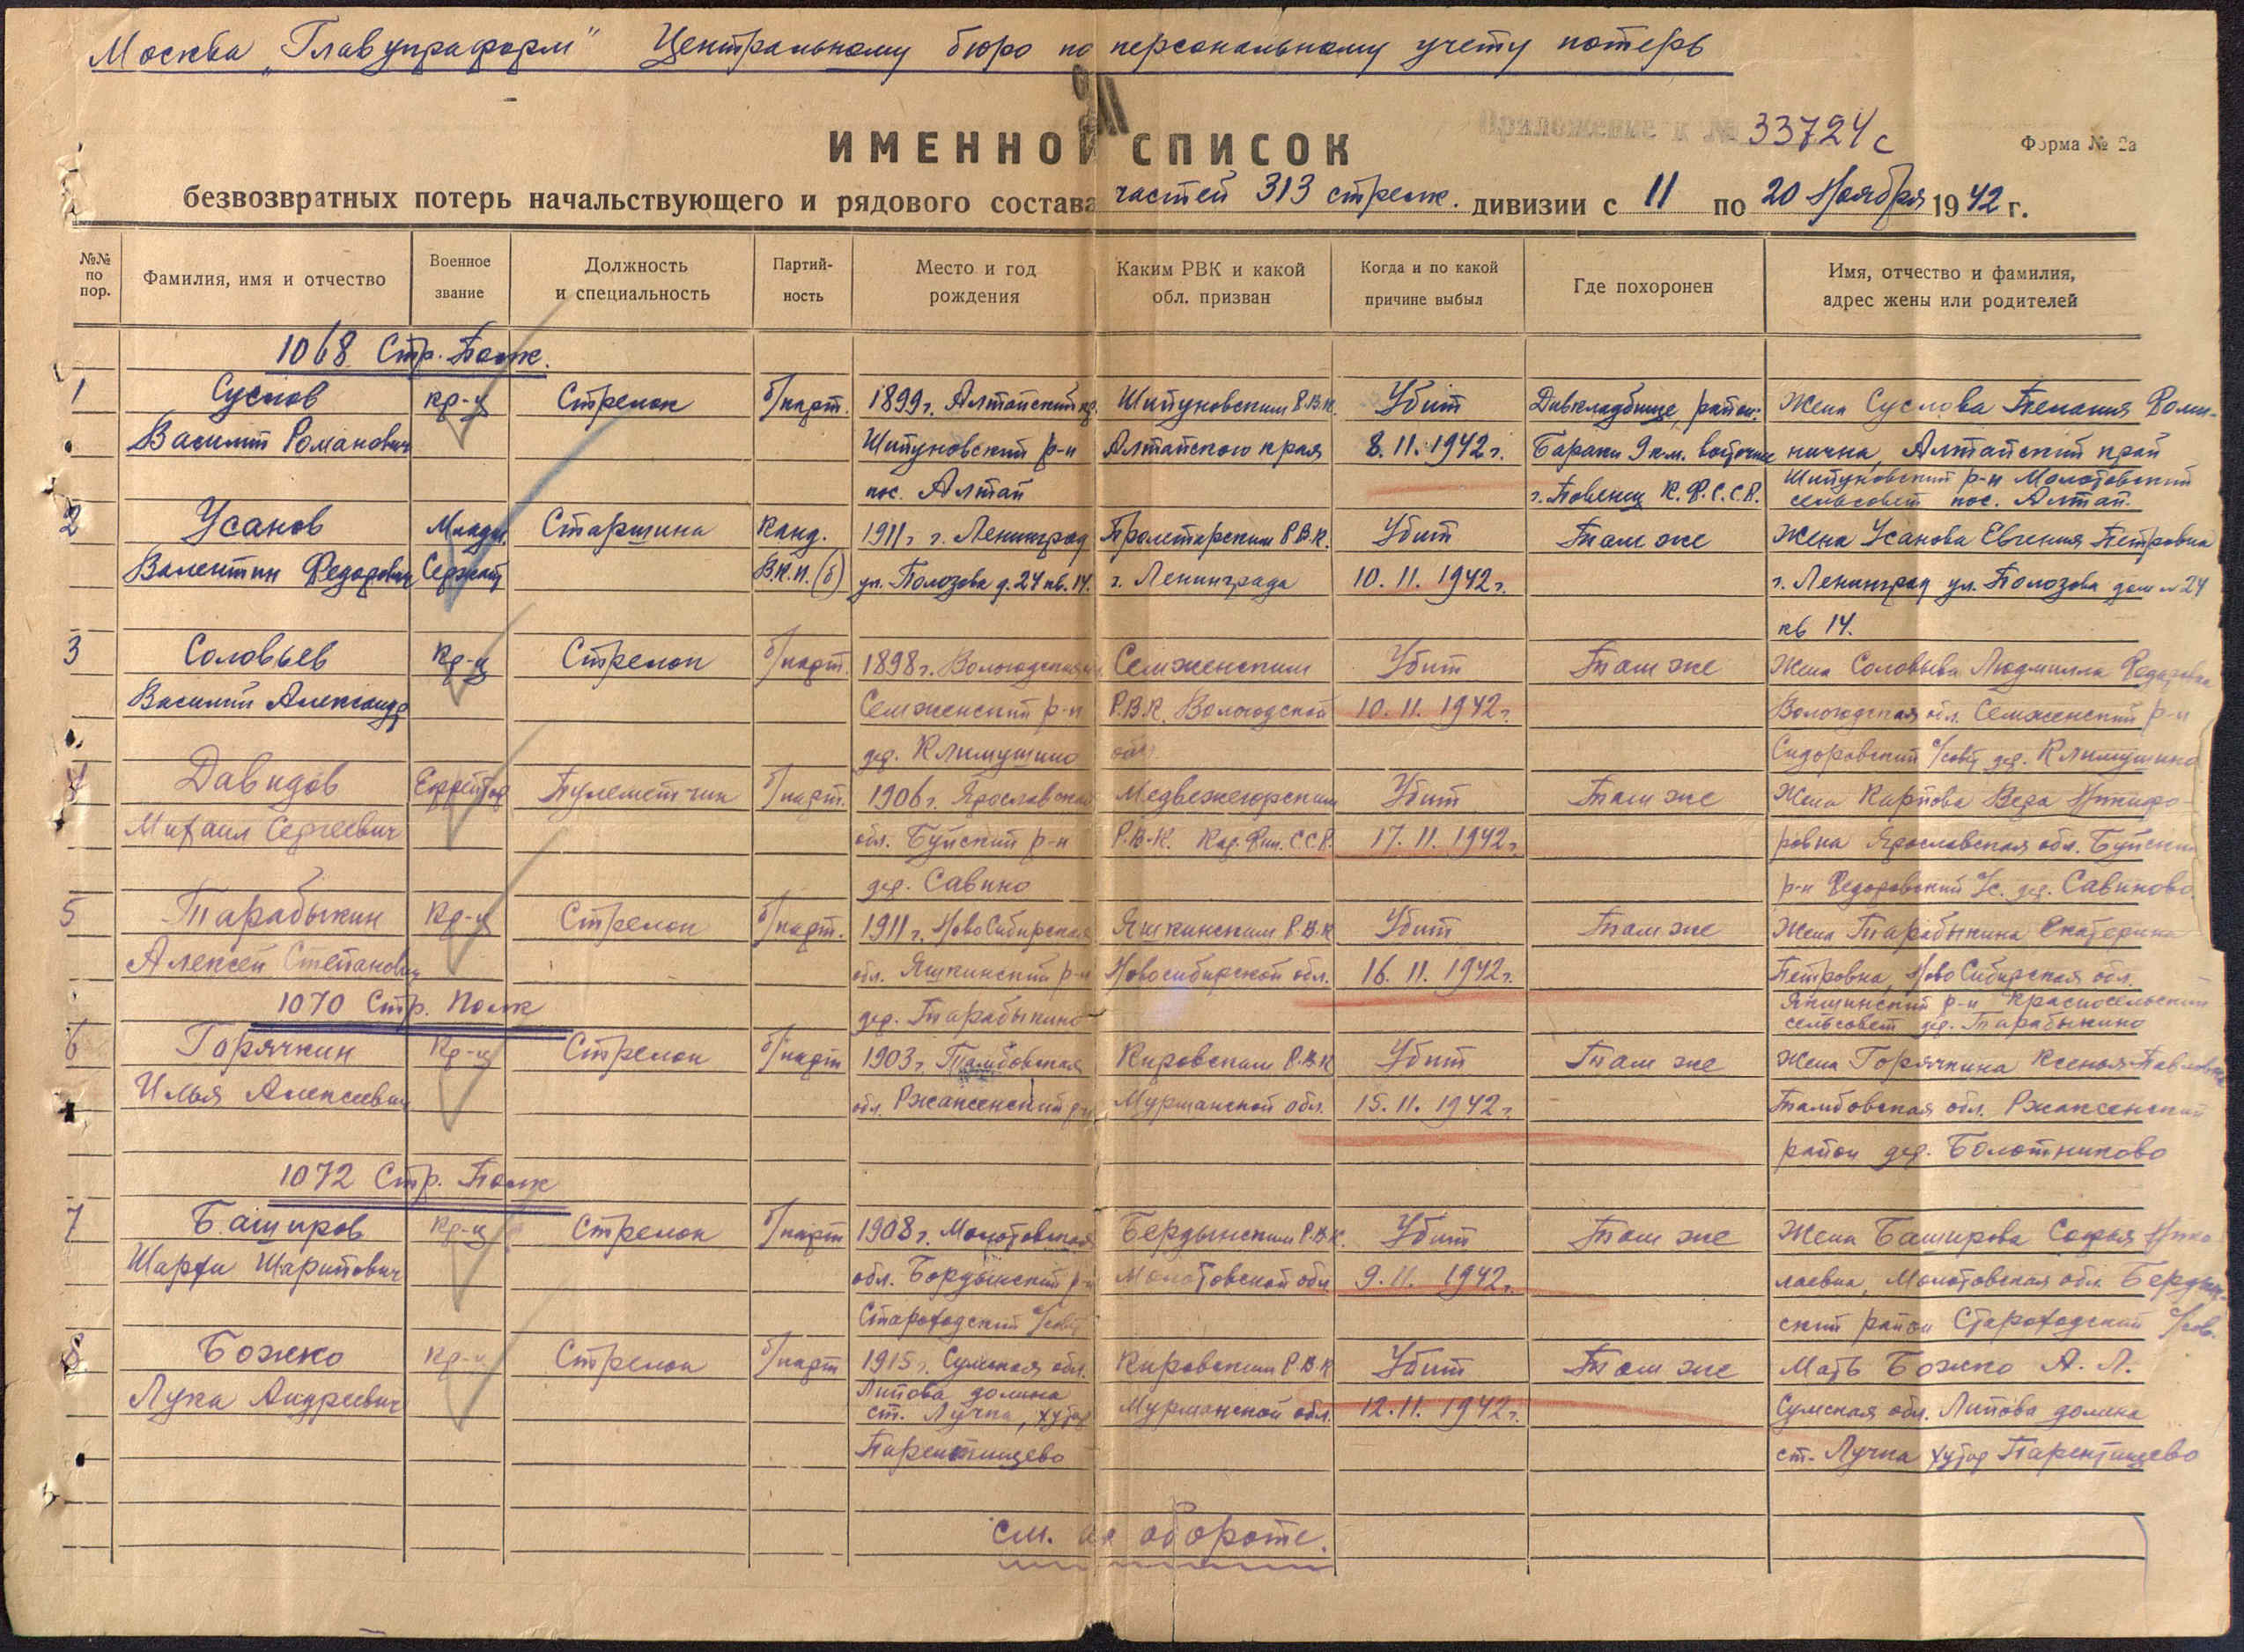 Москва „Главупраформ" Центральному бюро по персональному учету потерь
Приложение к № 33724с
Форма № 2а
ИМЕННОЙ СПИСОК
безвозвратных потерь начальствующего и рядового состава частей 313 стрелк. дивизии с 11 по 20 Ноября 1942 г.
№№ по пор.
Фамилия, имя и отчество
Военное звание
Должность и специальность
Партий-ность
Место и год рождения
Каким РВК и какой обл. призван
Когда и по какой причине выбыл
Где похоронен
Имя, отчество и фамилия, адрес жены или родителей
1068 Стр. Полк.
1 Суслов кр-ц Стрелок б/парт. 1899г. Алтайский кр. Шипуновским Р.В.К. Убит Дивкладбище, район: Жена Суслова Пелагия Фоми-
Василий Романович Шипуновский р-н Алтайского края 8.11.1942г. Бараки 9 км. восточнее нична, Алтайский край
пос. Алтай г. Повенец К.Ф.С.С.Р. Шипуновский р-н Молотовский
сельсовет пос. Алтай.
2 Усанов Младш. Старшина Канд. 1911г г. Ленинград Пролетарским Р.В.К. Убит Там же Жена Усанова Евгения Петровна
Валентин Федорович Сержант В.К.П.(б) ул. Полозова д. 24 кв. 14. г. Ленинграда 10.11.1942г. г. Ленинград ул. Полозова дом № 24
кв 14.
3 Соловьев Кр-ц Стрелок б/парт. 1898г. Вологодская Семженским Убит Там же Жена Соловьева Людмилла Федоровна
Василий Александр Семженский р-н Р.В.К. Вологодской 10.11.1942г. Вологодская обл. Семженский р-н
дер. Климушино обл. Сидоровский с/совет дер. Климушино
4 Давидов Ефрейтор Пулеметчик б/парт. 1906г. Ярославская Медвежегорским Убит Там же Жена Карпова Вера Никифо-
Михаил Сергеевич обл. Буйский р-н Р.В.К. Кар.Фин.С.С.Р. 17.11.1942г. ровна Ярославская обл. Буйский
дер. Савино р-н Федоровский с/с. дер. Савиново.
5 Тарабыкин Кр-ц Стрелок б/парт. 1911г. НовоСибирская Яшкинским Р.В.К Убит Там же Жена Тарабыкина Екатерина
Алексей Степанович обл. Яшкинский р-н Новосибирской обл. 16.11.1942г. Петровна, НовоСибирская обл.
1070 Стр. Полк дер. Тарабыкино Яшкинский р-н Красносельский
сельсовет дер. Тарабыкино
6 Горячкин Кр-ц Стрелок б/парт 1903г. Тамбовская Кировским Р.В.К Убит Там же Жена Горячкина Ксенья Павловна
Илья Алексеевич обл. Ржаксенский р-н Мурманской обл. 15.11.1942г. Тамбовская обл. Ржаксенский
район дер. Болотниково
1072 Стр. Полк
7 Баширов Кр-ц Стрелок б/парт 1908г. Молотовская Бердынским Р.В.К. Убит Там же Жена Баширова Софья Нико
Шарфи Шарипович обл. Бордынский р-н Молотовской обл 9.11.1942г. лаевна, Молотовская обл. Бердын-
Староходский с/совет ский район Староходский с/сов.
8 Божко Кр-ц Стрелок б/парт 1915г. Сумская обл. Кировским Р.В.К Убит Там же Мать Божко А. Л.
Лука Андреевич Липова долина Мурманской обл. 12.11.1942г. Сумская обл. Липова долина
ст. Лучка, хутор
Парентищево ст. Лучка хутор Парентищево
см. на обороте.